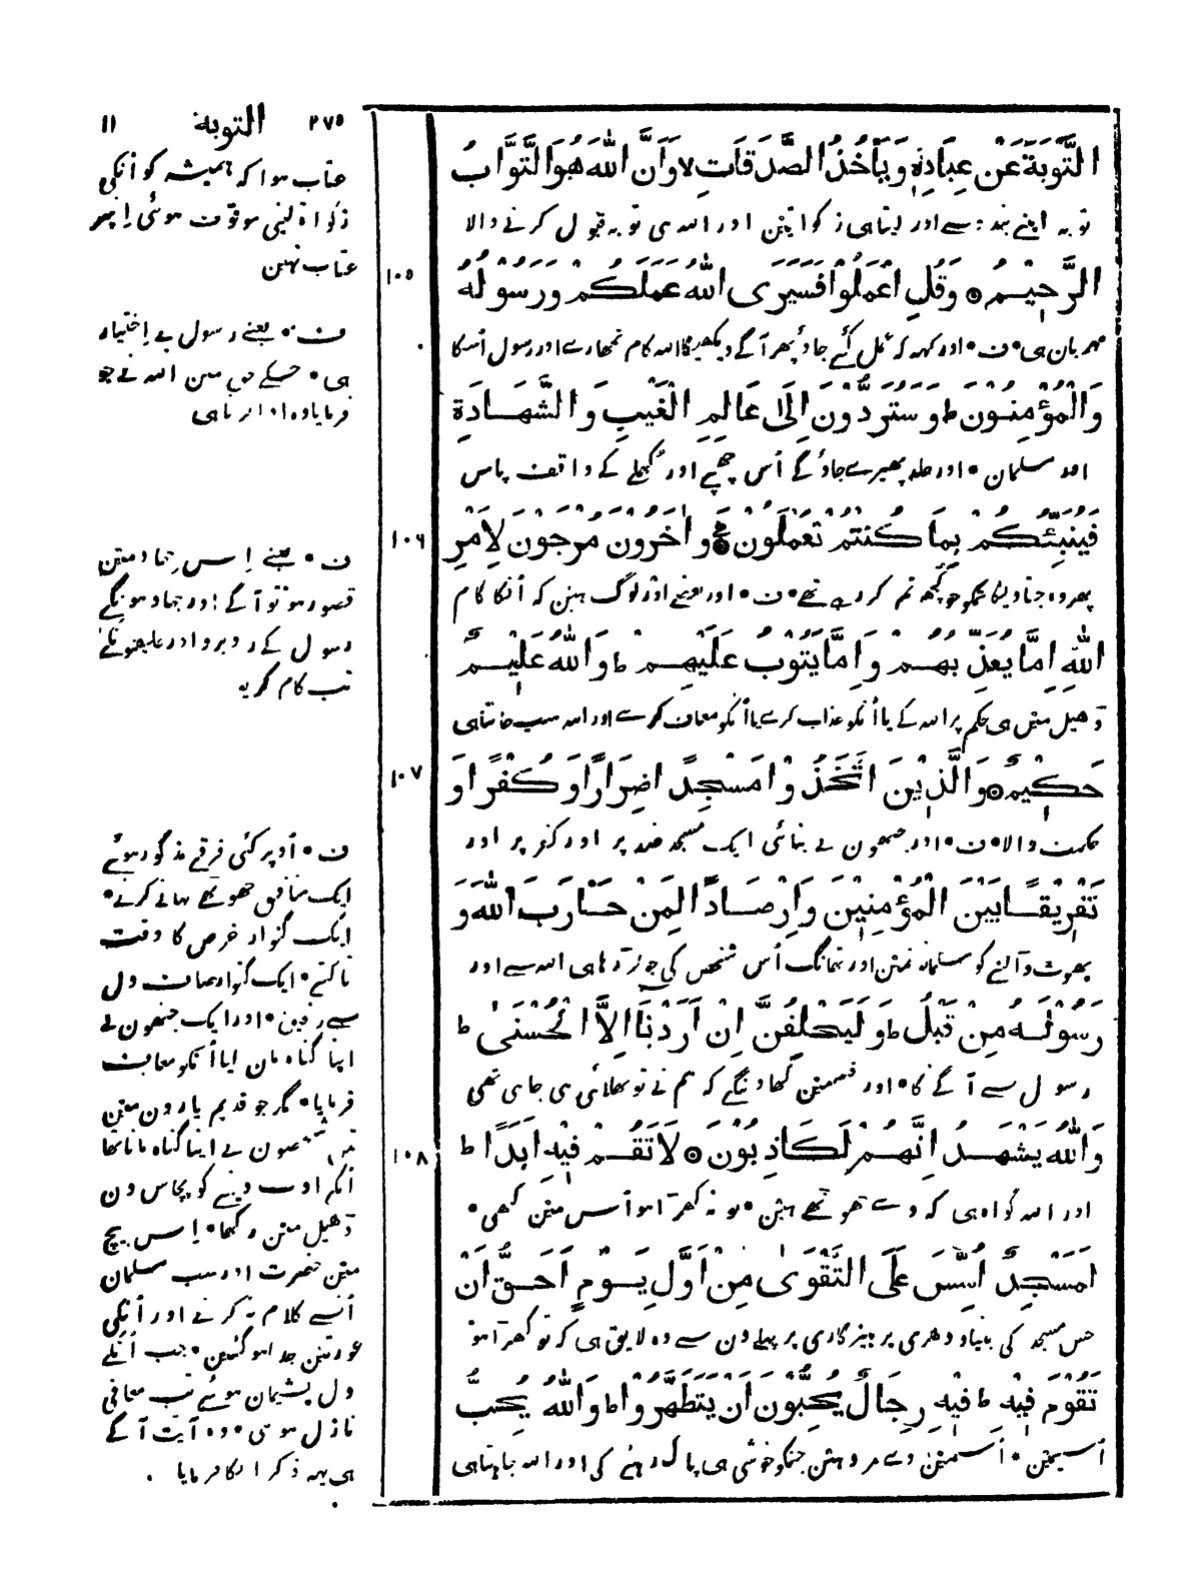 ٢٧٥ التوبة ١١
التَّوْبَةَ عَنْ عِبَادِهٖ وَيَأْخُذُ الصَّدَقَاتِ لا وَاَنَّ اللّٰهَ هُوَ التَّوَّابُ
توبہ اپنے بندے سے اور لیتا ہی زکواتین اور اللہ ہی توبہ قبول کرنے والا
الرَّحِيْمُ ۝ وَقُلِ اعْمَلُوْا فَسَيَرَى اللّٰهُ عَمَلَكُمْ وَرَسُوْلُهُ
١٠٥
مہربان ہی • ف • اور کہہ کہ عمل کئے جاؤ پھر آگے دیکھیگا اللہ کام تمھارے اور رسول اُسکا
وَالْمُؤْمِنُوْنَ ط وَسَتُرَدُّوْنَ اِلٰى عَالِمِ الْغَيْبِ وَالشَّهَادَةِ
اور مسلمان • اور جلد پھیرے جاوٴگے اُس چھپے اور کھلے کے واقف پاس
فَيُنَبِّئُكُمْ بِمَا كُنْتُمْ تَعْمَلُوْنَ ۝ وَاٰخَرُوْنَ مُرْجَوْنَ لِاَمْرِ
١٠٦
پھر وہ جتاویگا تمکو جو کچھ تم کر رہے تھے • ف • اور بعضے اور لوگ ہین کہ اُنکا کام
اللّٰهِ اِمَّا يُعَذِّبُهُمْ وَاِمَّا يَتُوْبُ عَلَيْهِمْ ط وَاللّٰهُ عَلِيْمٌ
ڈھیل مین ہی حکم پر اللہ کے یا اُنکو عذاب کرے یا اُنکو معاف کرے اور اللہ سب جانتا ہی
حَكِيْمٌ ۝ وَالَّذِيْنَ اتَّخَذُوْا مَسْجِدًا ضِرَارًا وَكُفْرًا وَ
١٠٧
حکمت والا • ف • اور جنھون نے بنائی ایک مسجد ضد پر اور کفر پر اور
تَفْرِيْقًا بَيْنَ الْمُؤْمِنِيْنَ وَاِرْصَادًا لِمَنْ حَارَبَ اللّٰهَ وَ
پھوٹ ڈالنے کو مسلمانون مین اور تھانگ اُس شخص کی جو لڑ رہا ہی اللہ سے اور
رَسُوْلَهُ مِنْ قَبْلُ ط وَلَيَحْلِفُنَّ اِنْ اَرَدْنَا اِلَّا الْحُسْنٰى ط
رسول سے آگے کا • اور قسمین کھاوینگے کہ ہم نے تو بھلائی ہی چاہی تھی
وَاللّٰهُ يَشْهَدُ اِنَّهُمْ لَكَاذِبُوْنَ ۝ لَا تَقُمْ فِيْهِ اَبَدًا ط
١٠٨
اور اللہ گواہ ہی کہ وے جھوٹھے ہین • تو نہ کھڑا ہو اُس مین کبھی •
لَمَسْجِدٌ اُسِّسَ عَلَى التَّقْوٰى مِنْ اَوَّلِ يَوْمٍ اَحَقُّ اَنْ
جس مسجد کی بنیاد دھری پرہیزگاری پر پہلے دن سے وہ لایق ہی کہ تو کھڑا ہو
تَقُوْمَ فِيْهِ ط فِيْهِ رِجَالٌ يُحِبُّوْنَ اَنْ يَتَطَهَّرُوْا ط وَاللّٰهُ يُحِبُّ
اُسمین • اُسمین وے مرد ہین جنکو خوشی ہی پاک رہنے کی اور اللہ چاہتا ہی
عتاب ہوا کہ ہمیشہ کو اُنکی
زکواۃ لینی موقوف ہوئی اِ پھر
عتاب نہین
ف • یعنے رسول بے اِختیار
ہی • جسکے حق مین اللہ نے جو
فرمایا وہ ادا کرتا ہی
ف • یعنے اِس جہاد مین
قصور ہو تو آگے اور جہاد ہونگے
رسول کے روبرو اور خلیفونکے
تب کام کریو
ف • اُوپر کئی فرقے مذکور ہوئے
ایک منافق جھوٹھے بہانے کرتے •
ایک گنوار غرض کا وقت
تاکتے • ایک گنوار صاف دل
سے رفیق • اور ایک جنھون نے
اپنا گناہ مان لیا اُنکو معاف
فرمایا • مگر جو قدیم یارون مین
تین شخصون نے اپنا گناہ مانا تھا
انکو ادب دینے کو پچاس دن
ڈھیل مین رکھا • اِس بیچ
مین حضرت اور سب مسلمان
اُنسے کلام نہ کرتے اور اُنکی
عورتین جدا ہو گئین • جب اُنکے
دل پشیمان ہوئے تب معافی
نازل ہوئی • وہ آیت آگے
ہی یہہ ذکر انکا فرمایا .